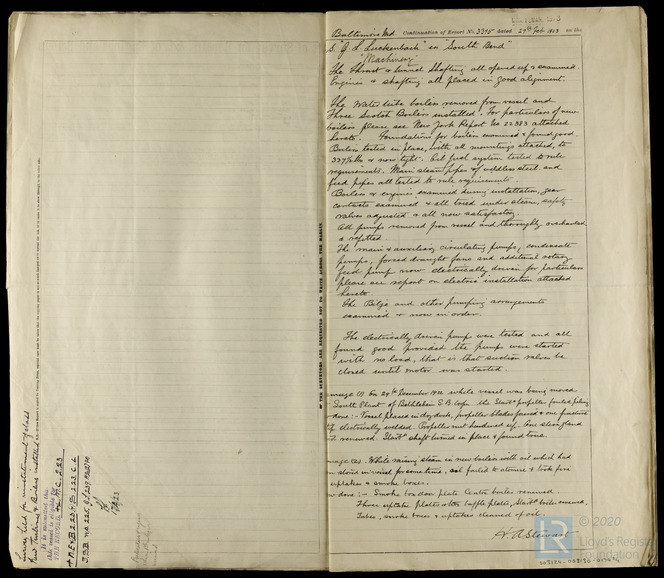 Baltimore Md Continuation of Report No. 3395 dated 27th Feb 1923 on the
S.S. "J L Luckenbach" ex "South Bend"
"Machinery"
The Thrust & tunnel shafting all opened up & examined
Engines & shafting all placed in good alignment.
The Water tube boilers removed from vessel and
Three Scotch Boilers installed. For particulars of new
boilers please see New York Report No 22383 attached
hereto. Foundations for boilers examined & found good
Boilers tested in place, with all mountings attached, to
337½ lbs & now tight. Oil fuel system tested to rule
requirements. Main steam pipes of weldless steel and
feed pipes all tested to rule requirements.
Boilers & engines examined during installation, gear
contacts examined & all tried under steam, safety
valves adjusted & all now satisfactory.
All pumps removed from vessel and thoroughly overhauled
& refitted.
The main & auxiliary circulating pumps, condensate
pumps, forced draught fans and additional rotary
feed pump now electrically driven for particulars
please see report on electric installation attached
hereto.
The Bilge and other pumping arrangements
examined & now in order.
The electrically driven pumps were tested and all
found good provided the pumps were started
with no load, that is that suction valves be
closed until motor was started.
Damage (1) On 24th December 1922 while vessel was being moved
South Plant of Bethlehem S.B. Corpn. the Starbd propeller fouled piling
done:- Vessel placed in dry dock, propeller blades faired & one fracture
electrically welded. Propeller nut hardened up. One stern gland
renewed. Starbd shaft turned in place & found true.
Damage (2). While raising steam in new boilers with oil which had
stood in vessel for some time, oil failed to atomize & took fire
uptakes & smoke boxes.
done:- Smoke box door plate Center boiler renewed.
Three uptake plates & two baffle plates, Starbd boiler renewed.
Tubes, smoke boxes & uptakes cleaned of oil.
A Stewart
OF THE SURVEYORS ARE REQUESTED NOT TO WRITE ACROSS THE MARGIN.
It is submitted that
this vessel is eligible for
THE RECORD
© 2020
LR
Lloyd's Register
Foundation